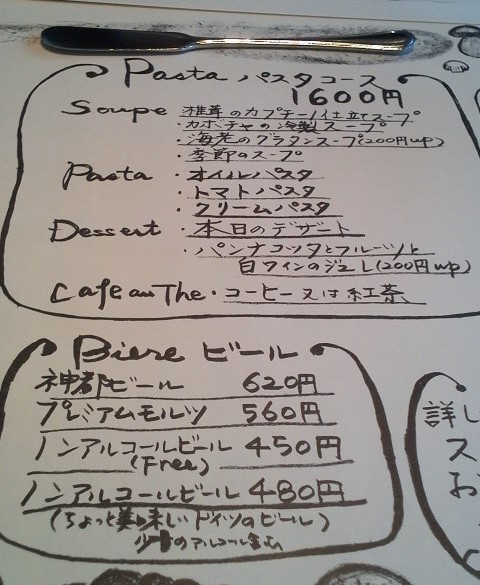 Pasta パスタコース
1600円
Soupe 椎茸のカプチーノ仕立てスープ
・カボチャの冷製スープ
・海老のグラタンスープ(200円up)
・季節のスープ
Pasta ・オイルパスタ
・トマトパスタ
・クリームパスタ
Dessert ・本日のデザート
・パンナコッタとフルーツと
白ワインのジュレ(200円up)
Cafe au The・コーヒー又は紅茶
Biere ビール
神都ビール 620円
プレミアムモルツ 560円
ノンアルコールビール 450円
(Free)
ノンアルコールビール 480円
(ちょっと美味しいドイツのビール)
少量のアルコール含む
詳し
ス
お